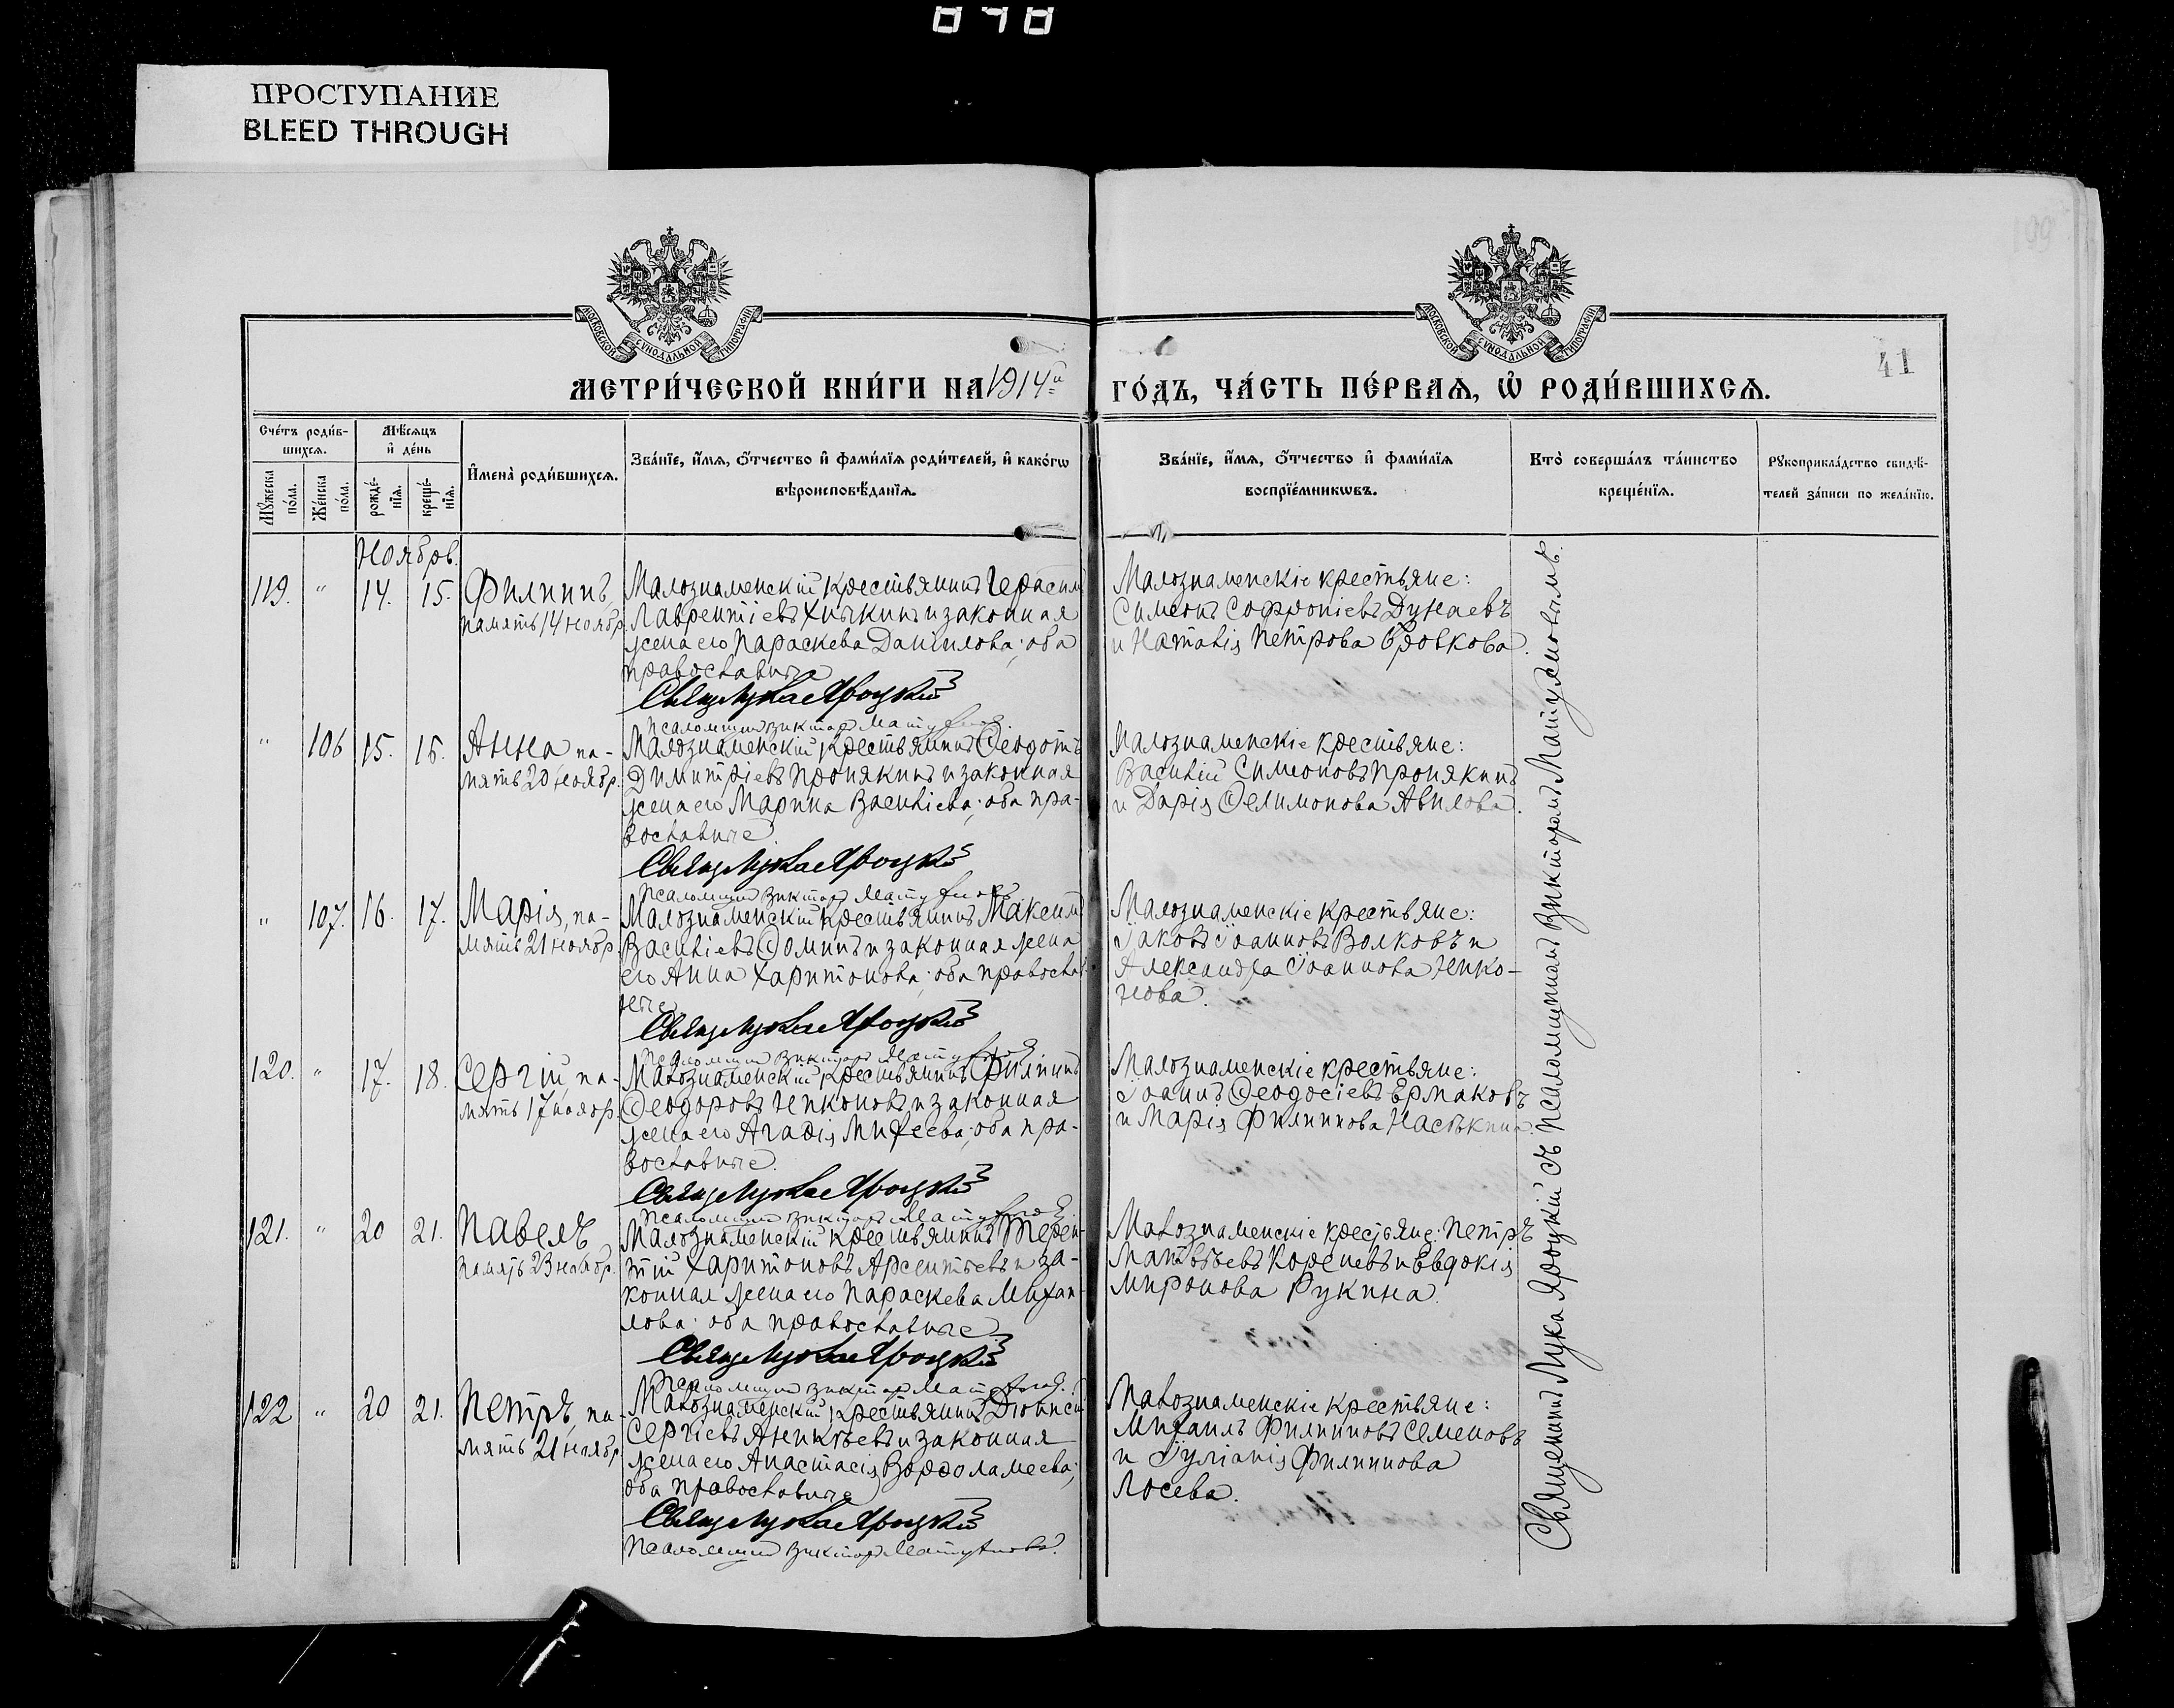 ПРОСТУПАНИЕ
BLEED THROUGH
МОСКОВСКОЙ СѴНОДАЛЬНОЙ ТИПОГРАФІИ
МОСКОВСКОЙ СѴНОДАЛЬНОЙ ТИПОГРАФІИ
41
МЕТРИ́ЧЕСКОЙ КНИ́ГИ НА 1914й
ГО́ДЪ, ЧА́СТЬ ПЕ́РВАѦ, Ѡ҆ РОДИ́ВШИХСѦ.
Сче́тъ роди́в-
шихсѧ.
Мѣ́сѧцъ
и҆ де́нь
Мꙋ́жеска
по́ла.
Же́нска
по́ла.
рожде́-
нїѧ.
креще́-
нїѧ.
И҆мена̀ роди́вшихсѧ.
Зва́нїе, и҆́мѧ, ѻ҆́тчество и҆ фами́лїѧ роди́телей, и҆ како́гѡ
вѣроисповѣ́данїѧ.
Зва́нїе, и҆́мѧ, ѻ҆́тчество и҆ фами́лїѧ
воспрїе́мникѡвъ.
Кто̀ соверша́лъ та́инство
креще́нїѧ.
Рꙋкоприкла́дство свидѣ́-
телей за́писи по жела́нїю.
Ноябрь.
119. " 14. 15. Филиппъ
память 14 ноябр.
Малознаменскій крестьянинъ Герасим
Лаврентіевъ Хичкинъ и законная
жена его Параскева Даніилова; оба
православные
Свящ Лука Яроцкій
Псаломщик Виктор Матусновъ
Малознаменскіе крестьяне:
Симеонъ Софроніевъ Дунаевъ
и Наталія Петрова Вдовкова.
" 106 15. 16. Анна па-
мять 20 ноябр.
Малознаменскій крестьянинъ Ѳеодотъ
Димитріевъ Пронякинъ и законная
жена его Марина Васильева; оба пра-
вославные
Свящ Лука Яроцкій
Псаломщик Виктор Матусновъ
Малознаменскіе крестьяне:
Василій Симеоновъ Пронякинъ
и Дарія Ѳелимонова Авилова.
" 107. 16. 17. Марія, па-
мять 21 ноябр.
Малознаменскій крестьянинъ Максимъ
Васильевъ Ѳоминъ и законная жена
его Анна Харитонова; оба православ
ные
Свящ Лука Яроцкій
Псаломщик Виктор Матусновъ
Малознаменскіе крестьяне:
Іаковъ Іоанновъ Волковъ и
Александра Іоаннова Нико-
нова.
120. " 17. 18. Сергій, па-
мять 17 ноябр.
Малознаменскій крестьянинъ Филиппъ
Ѳеодоровъ Никоновъ и законная
жена его Агафія Михеева; оба пра-
вославные.
Свящ Лука Яроцкій
Псаломщик Виктор Матусновъ
Малознаменскіе крестьяне:
Іоаннъ Ѳеодосіевъ Ермаковъ
и Марія Филиппова Насѣкина.
121. " 20 21. Павелъ
память 23 ноябр.
Малознаменскій крестьянинъ Терен-
тій Харитоновъ Арсентьевъ и за-
конная жена его Параскева Михаи-
лова; оба православные
Свящ Лука Яроцкій
Псаломщик Виктор Матусновъ.
Малознаменскіе крестьяне: Петръ
Матвѣевъ Кореневъ и Евдокія
Миронова Рукина.
122 " 20 21. Петръ, па-
мять 21 ноябр
Малознаменскій крестьянинъ Діонисій
Сергіевъ Аникѣевъ и законная
жена его Анастасія Варфоламеева;
оба православные
Свящ Лука Яроцкій
Псаломщик Виктор Матусновъ.
Малознаменскіе крестьяне:
Михаилъ Филипповъ Семеновъ
и Іуліанія Филиппова
Лосева.
Священникъ Лука Яроцкій съ псаломщикомъ Викторомъ Матусновымъ.